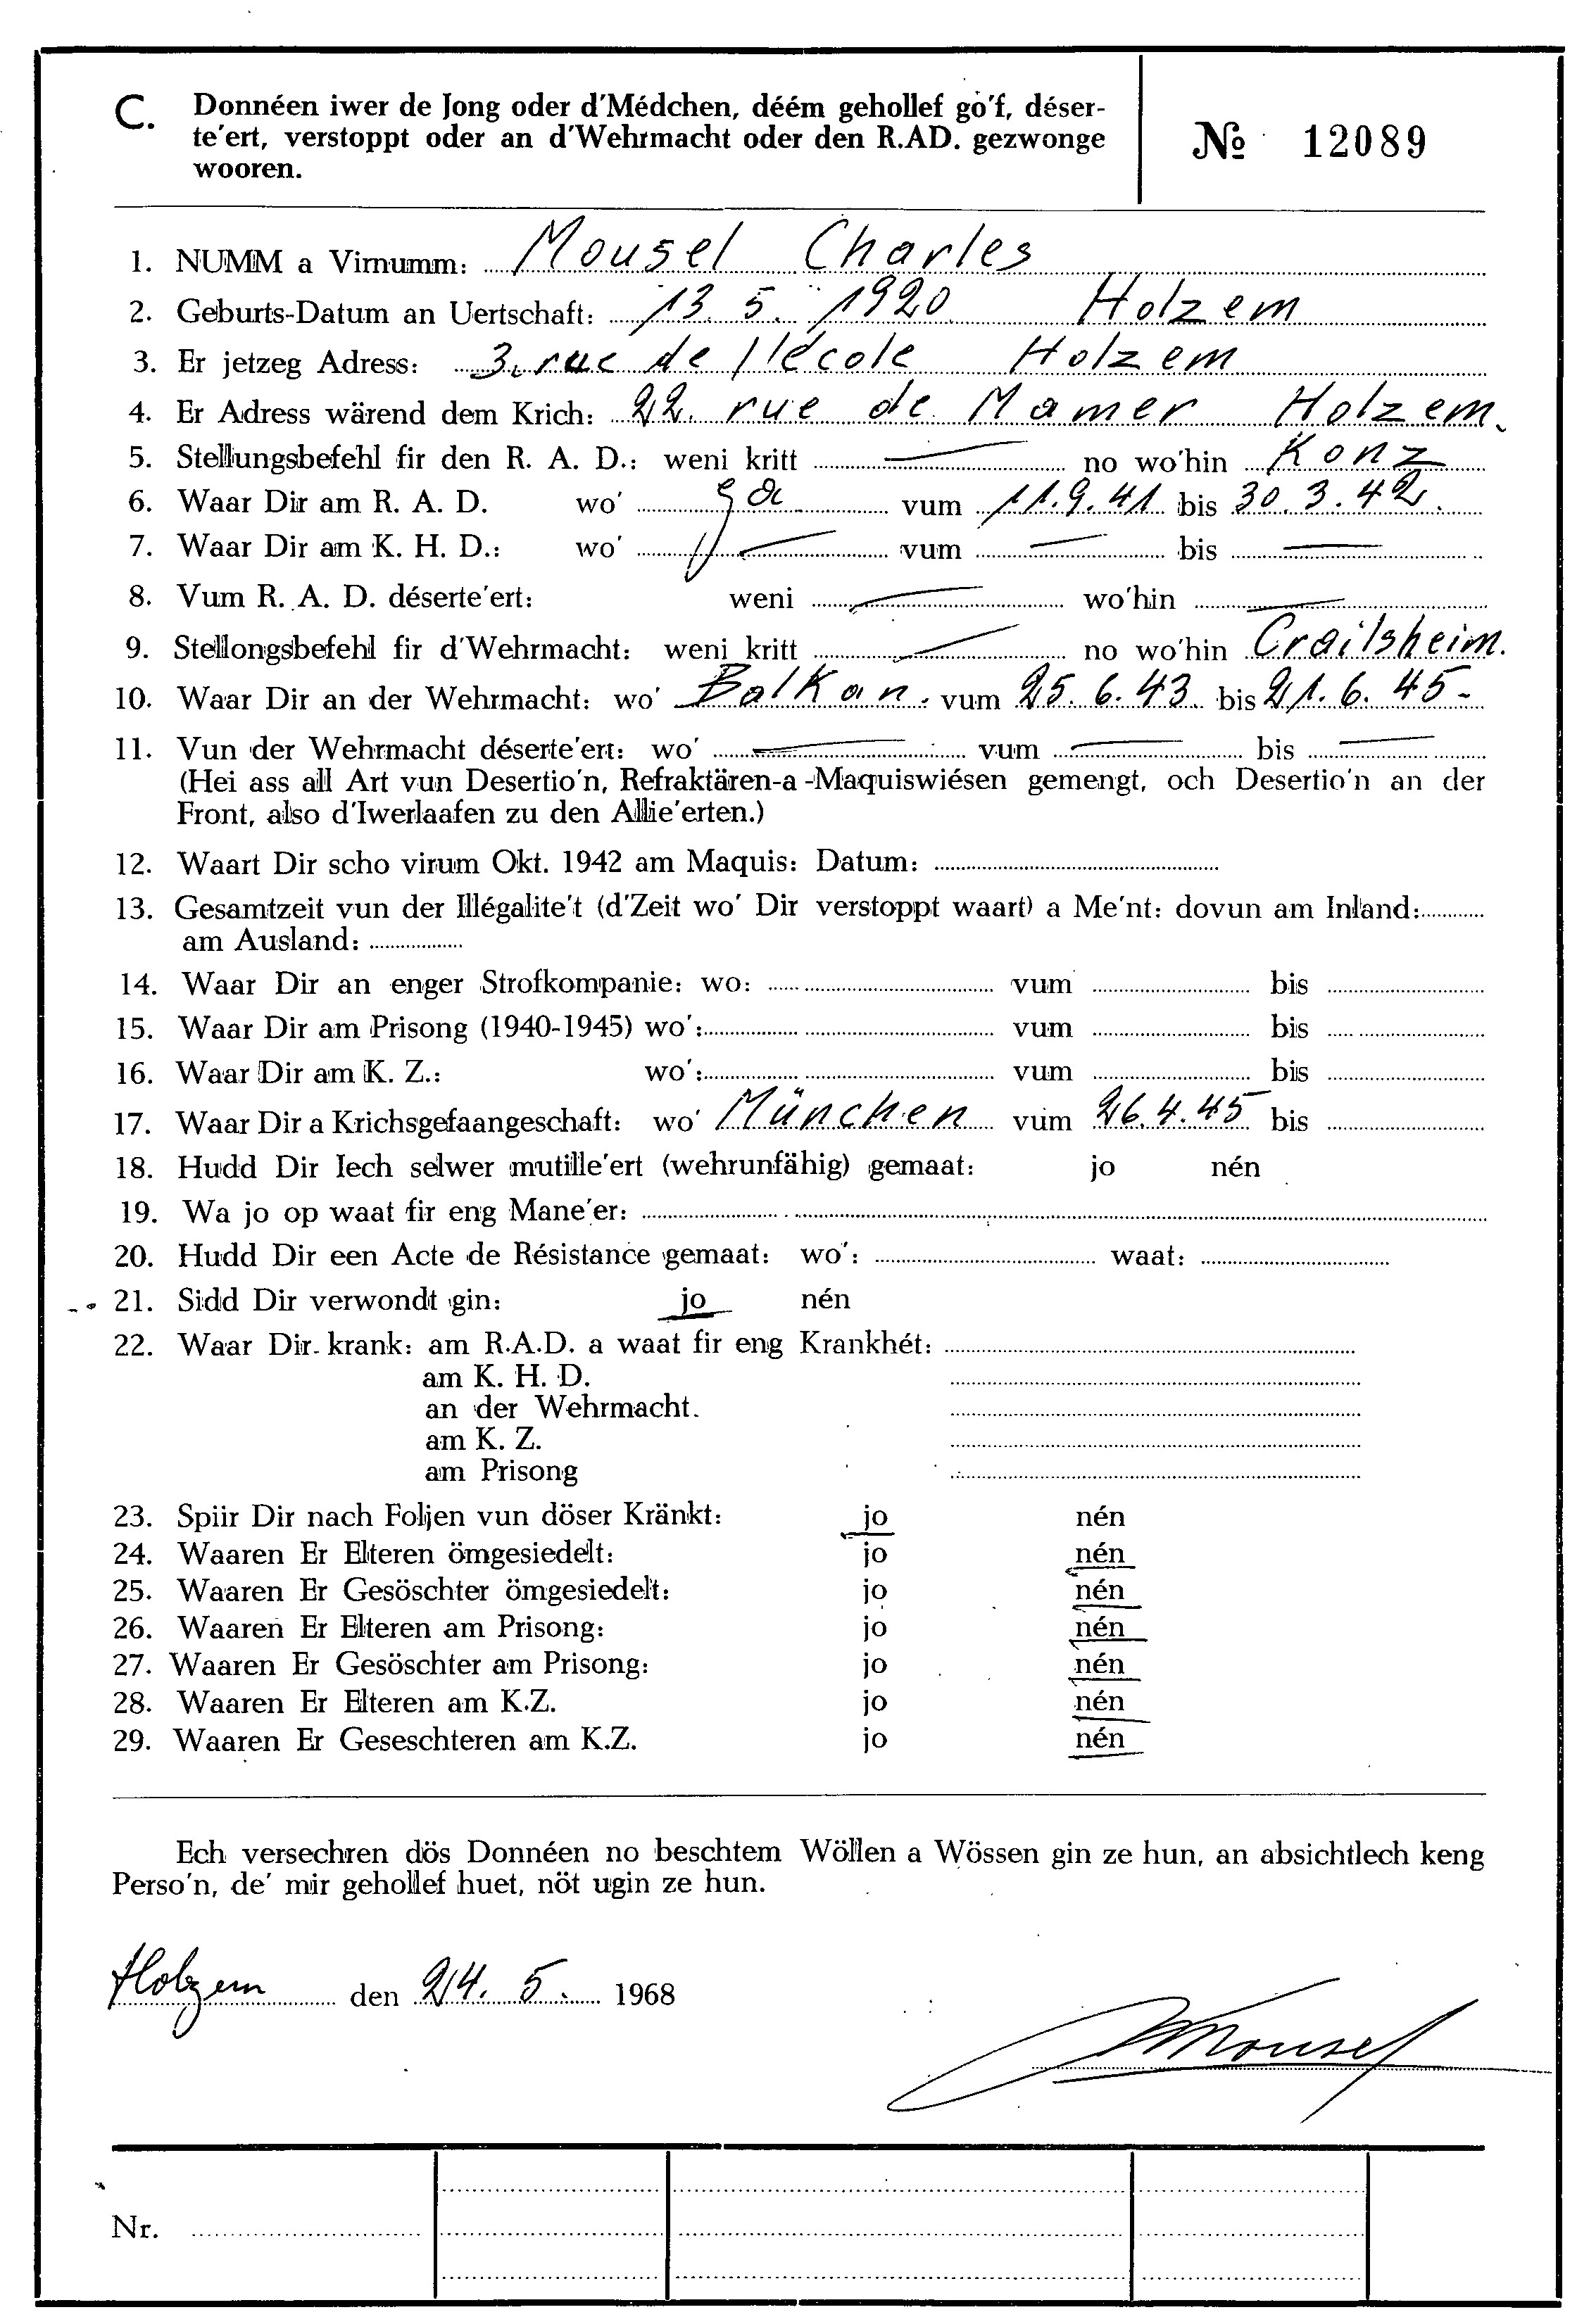 C. Donnéen iwer de Jong oder d'Médchen, déém gehollef go'f, déser-
te'ert, verstoppt oder an d'Wehrmacht oder den R.AD. gezwonge
wooren.
№ 12089
1. NUMM a Virnumm: Mousel Charles
2. Geburts-Datum an Uertschaft: 13. 5. 1920 Holzem
3. Er jetzeg Adress: 3, rue de l'école Holzem
4. Er Adress wärend dem Krich: 22. rue de Mamer Holzem.
5. Stellungsbefehl fir den R. A. D.: weni kritt — no wo'hin Konz
6. Waar Dir am R. A. D. wo' ja vum 11.9.41 bis 30.3.42.
7. Waar Dir am K. H. D.: wo' — vum — bis —
8. Vum R. A. D. déserte'ert: weni — wo'hin —
9. Stellongsbefehl fir d'Wehrmacht: weni kritt — no wo'hin Crailsheim.
10. Waar Dir an der Wehrmacht: wo' Balkan. vum 25.6.43 bis 21.6.45-
11. Vun der Wehrmacht déserte'ert: wo' — vum — bis —
(Hei ass all Art vun Desertio'n, Refraktären-a -Maquiswiésen gemengt, och Desertio'n an der
Front, also d'Iwerlaafen zu den Allie'erten.)
12. Waart Dir scho virum Okt. 1942 am Maquis: Datum:
13. Gesamtzeit vun der Illégalite't (d'Zeit wo' Dir verstoppt waart) a Me'nt: dovun am Inland:
am Ausland:
14. Waar Dir an enger Strofkompanie: wo: vum bis
15. Waar Dir am Prisong (1940-1945) wo': vum bis
16. Waar Dir am K. Z.: wo': vum bis
17. Waar Dir a Krichsgefaangeschaft: wo' München vum 26.4.45 bis
18. Hudd Dir Iech selwer mutille'ert (wehrunfähig) gemaat: jo nén
19. Wa jo op waat fir eng Mane'er:
20. Hudd Dir een Acte de Résistance gemaat: wo': waat:
21. Sidd Dir verwondt gin: jo nén
22. Waar Dir krank: am R.A.D. a waat fir eng Krankhét:
am K. H. D.
an der Wehrmacht.
am K. Z.
am Prisong
23. Spiir Dir nach Foljen vun döser Kränkt: jo nén
24. Waaren Er Elteren ömgesiedelt: jo nén
25. Waaren Er Gesöschter ömgesiedelt: jo nén
26. Waaren Er Elteren am Prisong: jo nén
27. Waaren Er Gesöschter am Prisong: jo nén
28. Waaren Er Elteren am K.Z. jo nén
29. Waaren Er Geseschteren am K.Z. jo nén
Ech versechren dös Donnéen no beschtem Wöllen a Wössen gin ze hun, an absichtlech keng
Perso'n, de' mir gehollef huet, nöt ugin ze hun.
Holzem den 24. 5. 1968
Mousel
Nr.